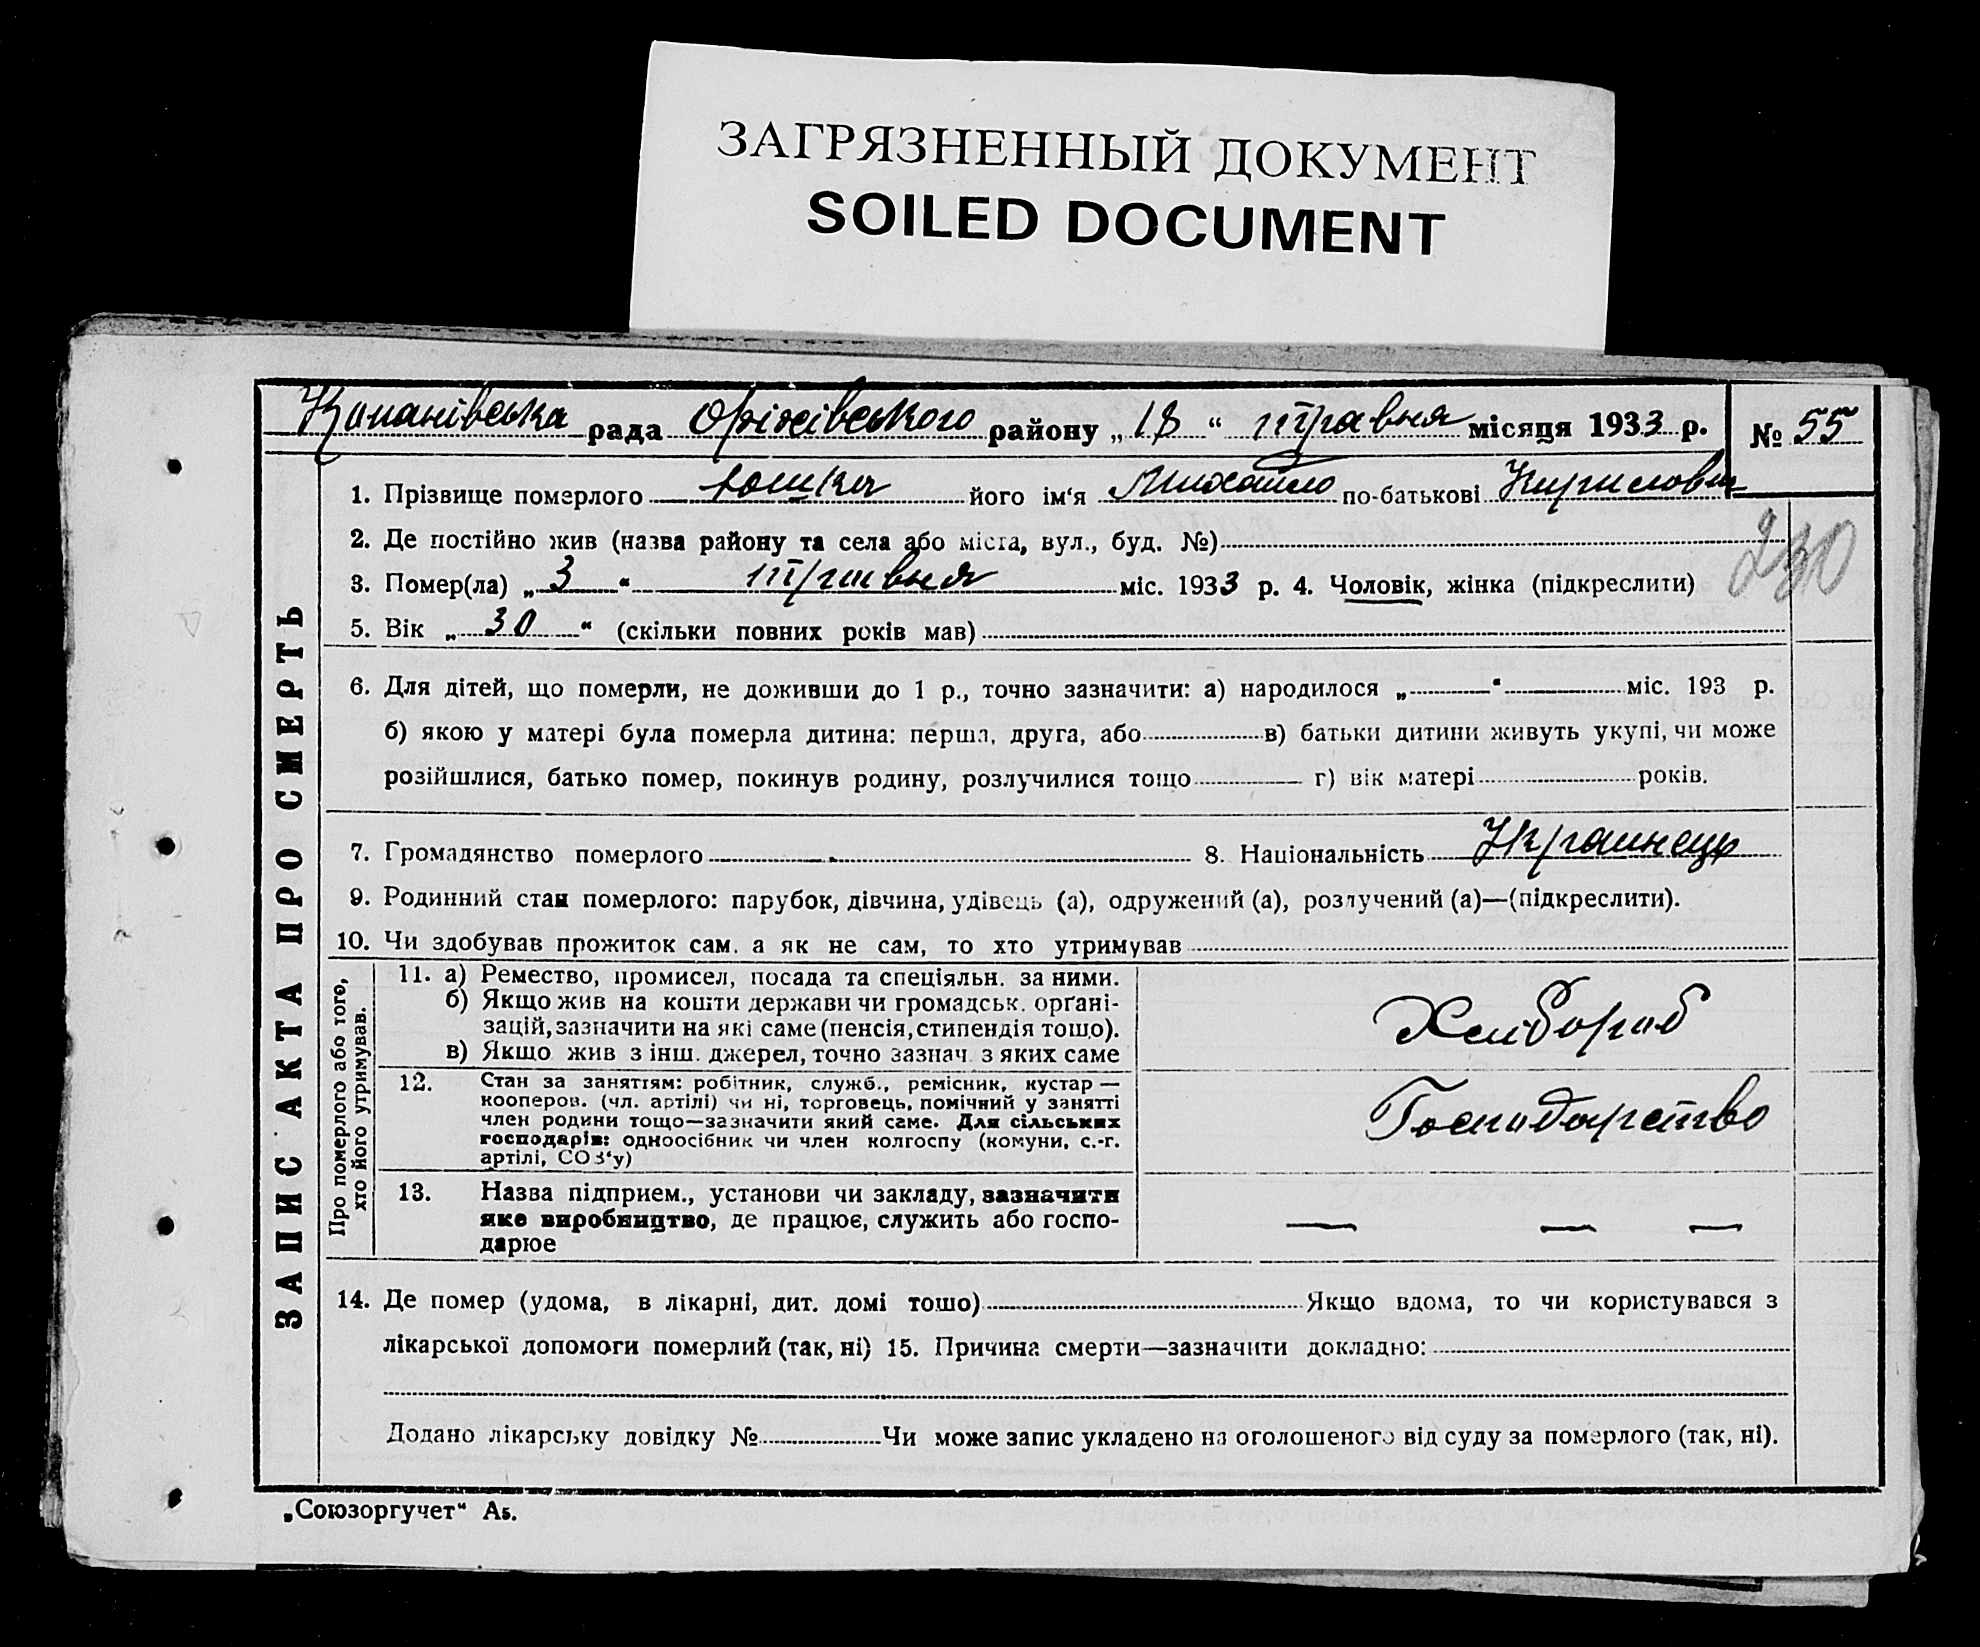 ЗАГРЯЗНЕННЫЙ ДОКУМЕНТ
SOILED DOCUMENT
Копанівська рада Оріхівського району „18“ травня місяця 1933 р. № 55
ЗАПИС АКТА ПРО СМЕРТЬ
1. Прізвище померлого його ім'я Михайло по-батькові Кирилович
230
2. Де постійно жив (назва району та села або міста, вул., буд. №)
3. Помер(ла) „3“ травня міс. 1933 р. 4. Чоловік, жінка (підкреслити)
5. Вік „30“ (скільки повних років мав)
6. Для дітей, що померли, не доживши до 1 р., точно зазначити: а) народилося „ “ міс. 193 р.
б) якою у матері була померла дитина: перша, друга, або в) батьки дитини живуть укупі, чи може
розійшлися, батько помер, покинув родину, розлучилися тощо г) вік матері років.
7. Громадянство померлого 8. Національність Українець
9. Родинний стан померлого: парубок, дівчина, удівець (а), одружений (а), розлучений (а)—(підкреслити).
10. Чи здобував прожиток сам, а як не сам, то хто утримував
Про померлого або того,
хто його утримував.
11. а) Ремество, промисел, посада та спеціяльн. за ними.
б) Якщо жив на кошти держави чи громадськ. орґані-
зацій, зазначити на які саме (пенсія, стипендія тощо).
в) Якщо жив з інш. джерел, точно зазнач. з яких саме
Хлібороб
12. Стан за заняттям: робітник, служб., ремісник, кустар —
кооперов. (чл. артілі) чи ні, торговець, помічний у занятті
член родини тощо—зазначити який саме. Для сільських
господарів: одноосібник чи член колгоспу (комуни, с.-г.
артілі, СОЗ'у)
Господарство
13. Назва підприєм., установи чи закладу, зазначити
яке виробництво, де працює, служить або госпо-
дарює
— — —
14. Де помер (удома, в лікарні, дит. домі тошо) Якщо вдома, то чи користувався з
лікарської допомоги померлий (так, ні) 15. Причина смерти—зазначити докладно:
Додано лікарську довідку № Чи може запис укладено на оголошеного від суду за померлого (так, ні).
„Союзоргучет“ А5.